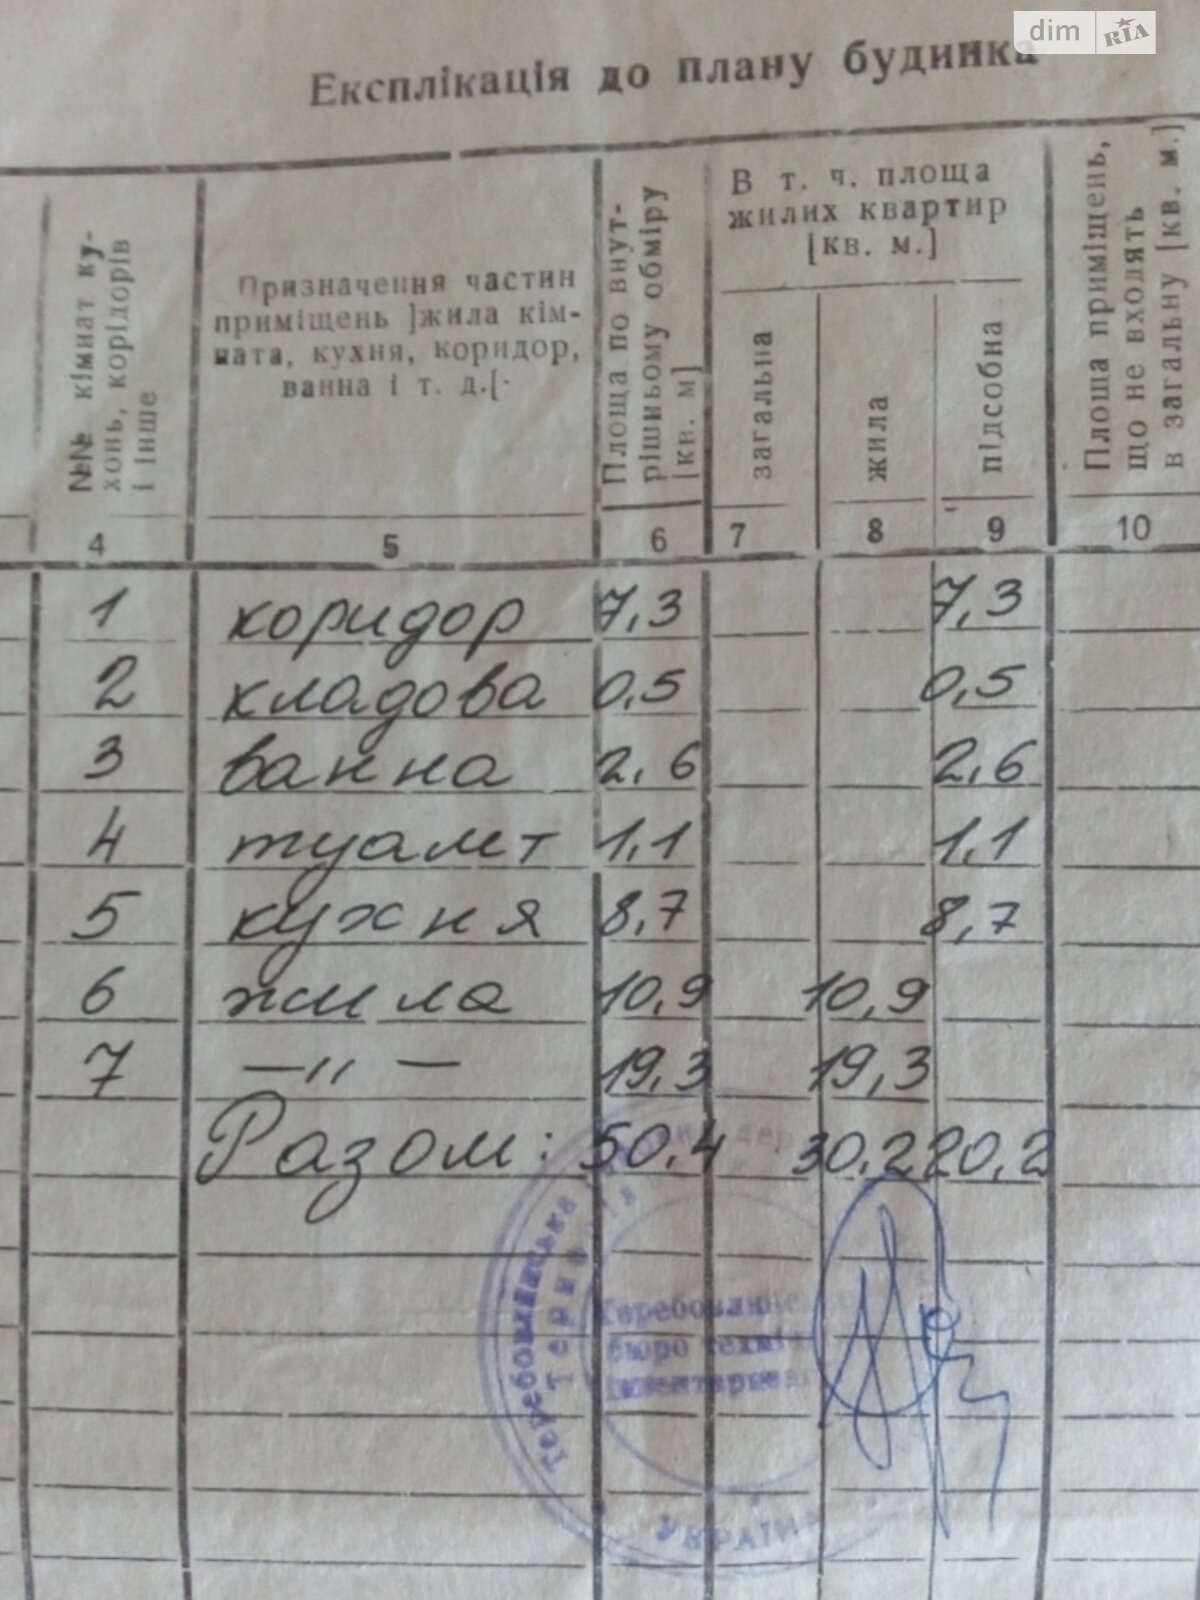 dim RIA
Експлікація до плану будинка
№№ кімнат ку-
хонь, корідорів
і інше
Призначення частин
приміщень ]жила кім-
ната, кухня, коридор,
ванна і т. д.[
Площа по внут-
рішньому обміру
[кв. м]
В т. ч. площа
жилих квартир
[кв. м.]
загальна
жила
підсобна
Площа приміщень,
що не входять
в загальну [кв. м.]
4 5 6 7 8 9 10
1 коридор 7,3 7,3
2 кладова 0,5 0,5
3 ванна 2,6 2,6
4 туалет 1,1 1,1
5 кухня 8,7 8,7
6 жила 10,9 10,9
7 —〃— 19,3 19,3
Разом: 50,4 30,2 20,2
Теребовлянське
бюро технічної
інвентаризації
Теребовлянська
УКРАЇНА